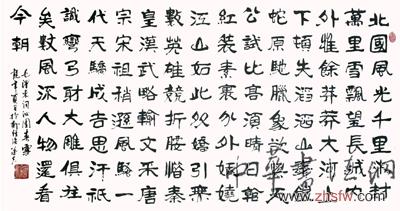 北國風光千里冰封
萬里雪飄望長城內
外惟餘莽莽大河上
下頓失滔滔山舞銀
蛇原馳蠟象欲與天
公試比高須晴日看
紅裝素裹分外妖嬈
江山如此多嬌引無
數英雄競折腰惜秦
皇漢武略輸文采唐
宗宋祖稍遜風騷一
代天驕成吉思汗只
識彎弓射大雕俱往
矣數風流人物還看
今朝
毛澤東詞沁園春雪
www.zhsfw.com